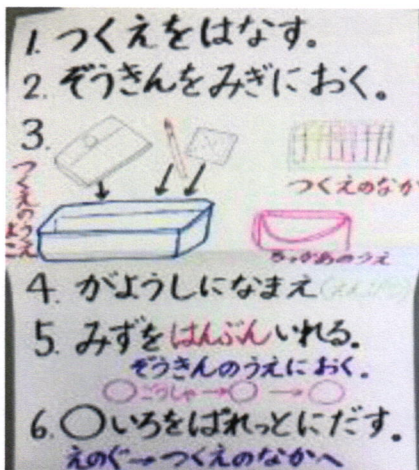 1. つくえをはなす。
2. ぞうきんをみぎにおく。
3.
つくえのうえ
よこ
つくえのなか
ろっかあのうえ
4. がようしになまえ(えんぴつ)
5. みずをはんぶんいれる。
ぞうきんのうえにおく。
○ごうしゃ→○→○
6. ○いろをぱれっとにだす。
えのぐ→つくえのなかへ